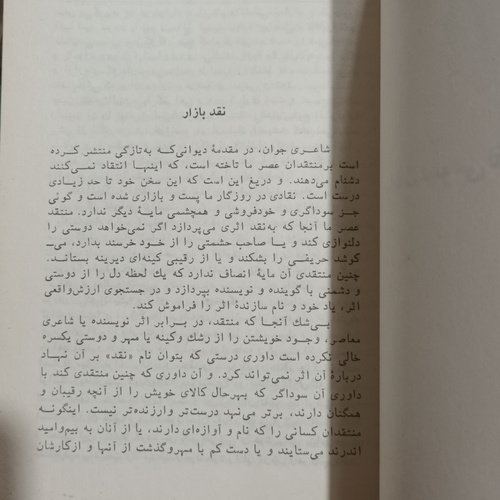 نقد بازار
شاعری جوان، در مقدمهٔ دیوانی‌که به‌تازگی منتشر کرده
است برمنتقدان عصر ما تاخته است، که اینها انتقاد نمی‌کنند
دشنام می‌دهند. و دریغ این است که این سخن خود تا حد زیادی
درست است. نقادی در روزگار ما پست و بازاری شده است و گوئی
جز سوداگری و خودفروشی و همچشمی مایهٔ دیگر ندارد. منتقد
عصر ما آنجا که به‌نقد اثری می‌پردازد اگر نمی‌خواهد دوستی را
دلنوازی کند و یا صاحب حشمتی را از خود خرسند بدارد، می‌ـ
کوشد حریفی را بشکند و یا از رقیبی کینه‌ای دیرینه بستاند.
چنین منتقدی آن مایهٔ انصاف ندارد که یك لحظه دل را از دوستی
و دشمنی با گوینده و نویسنده بپردازد و در جستجوی ارزش‌واقعی
اثر، یاد خود و نام سازندهٔ اثر را فراموش کند.
بی‌شك آنجا که منتقد، در برابر اثر نویسنده یا شاعری
معاصر، وجود خویشتن را از رشك وکینه یا مهر و دوستی یکسره
خالی نکرده است داوری درستی که بتوان نام «نقد» بر آن نهاد
دربارهٔ آن اثر نمی‌تواند کرد. و آن داوری که چنین منتقدی کند با
داوری آن سوداگر که بهرحال کالای خویش را از آنچه رقیبان و
همگنان دارند، برتر می‌نهد درست‌تر وارزنده‌تر نیست. اینگونه
منتقدان کسانی را که نام و آوازه‌ای دارند، یا از آنان به بیم‌وامید
اندرند می‌ستایند و یا دست کم با مهروگذشت از آنها و ازکارشان